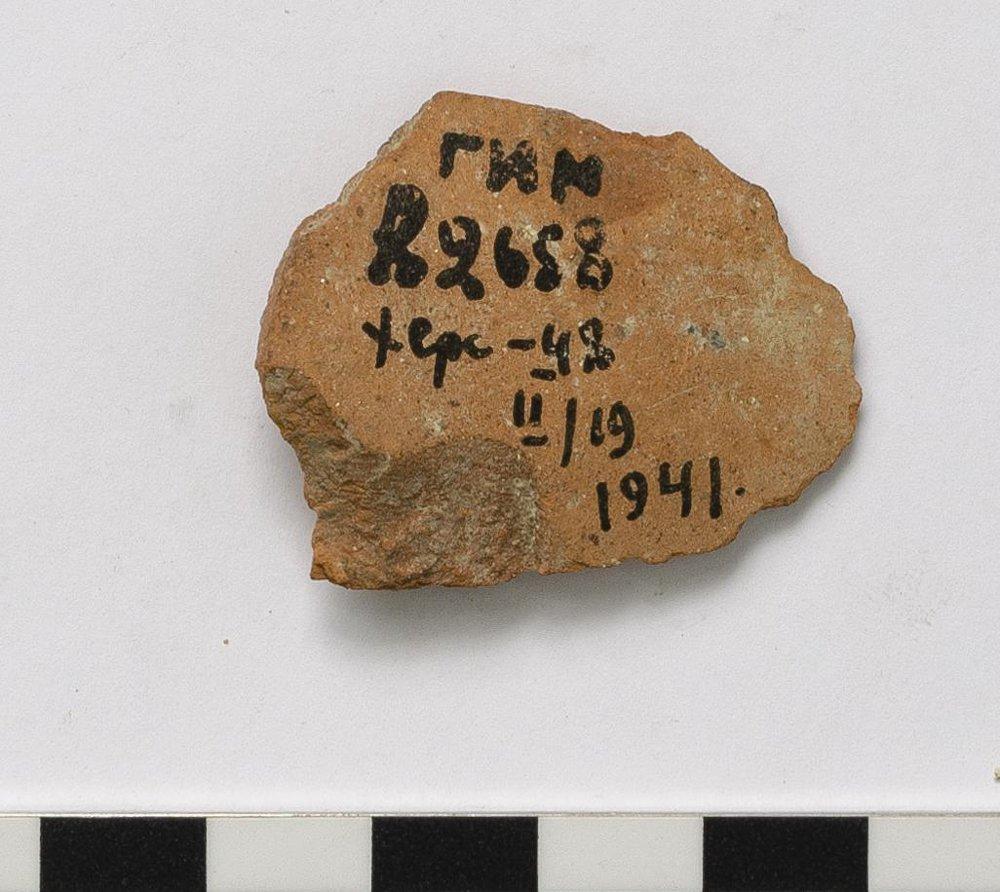 ГИМ
82658
Херс-48
II/19
1941.